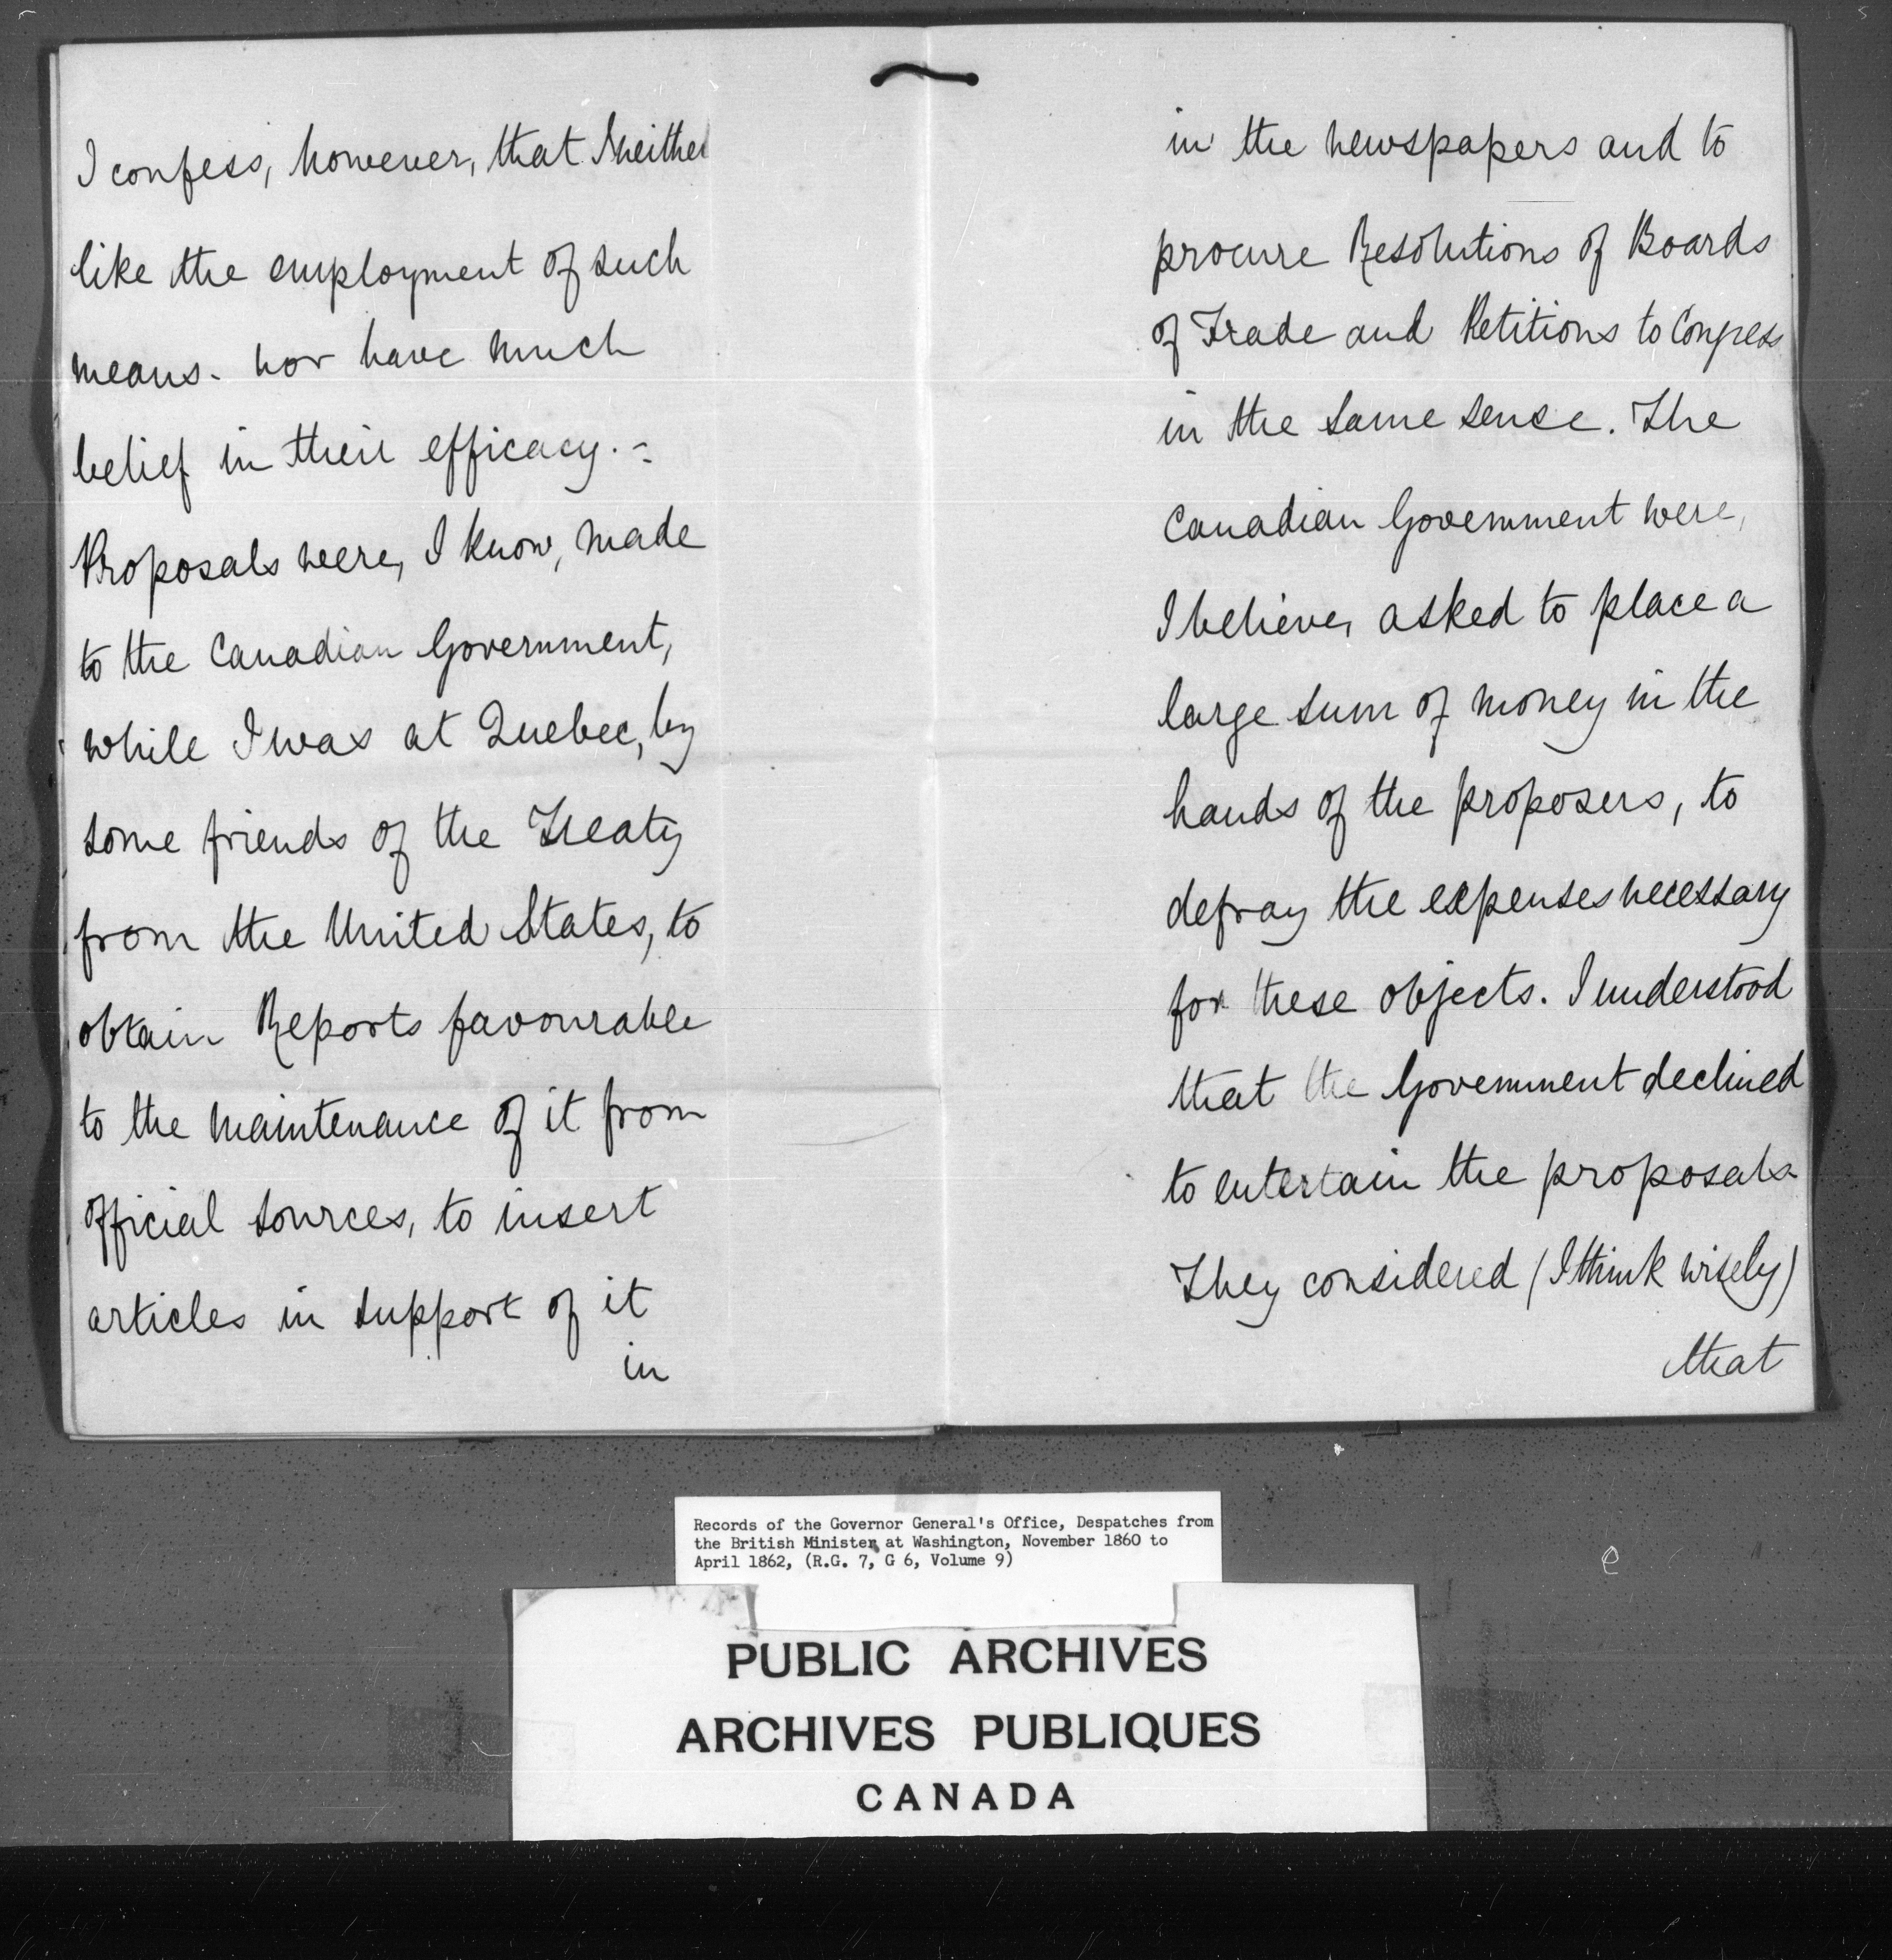 I confess, however, that I neither
like the employment of such
means. nor have much
belief in their efficacy. -
Proposals were, I know, made
to the Canadian Government,
while I was at Quebec, by
some friends of the Treaty
from the United States, to
obtain Reports favourable
to the maintenance of it from
official sources, to insert
articles in support of it
in
in the newspapers and to
procure Resolutions of Boards
of Trade and Petitions to Congress
in the same sense. The
Canadian Government were,
I believe, asked to place a
large sum of money in the
hands of the proposers, to
defray the expenses necessary
for these objects. I understood
that the Government declined
to entertain the proposals.
They considered (I think wisely)
that
Records of the Governor General's Office, Despatches from
the British Minister at Washington, November 1860 to
April 1862, (R.G. 7, G 6, Volume 9)
PUBLIC ARCHIVES
ARCHIVES PUBLIQUES
CANADA